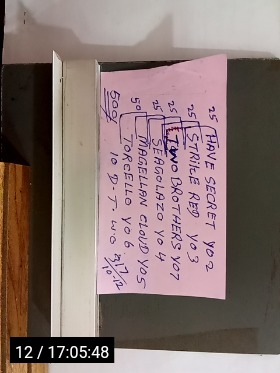 25 HAVE SECRET YO 2
25 STRIKE RED YO 3
25 TWO BROTHERS YO7
25 SEAGOLAZO YO 4
50 MAGELLAN CLOUD YO5
500 TORCELLO YO 6
10 D. T. W. O
12 / 17:05:48